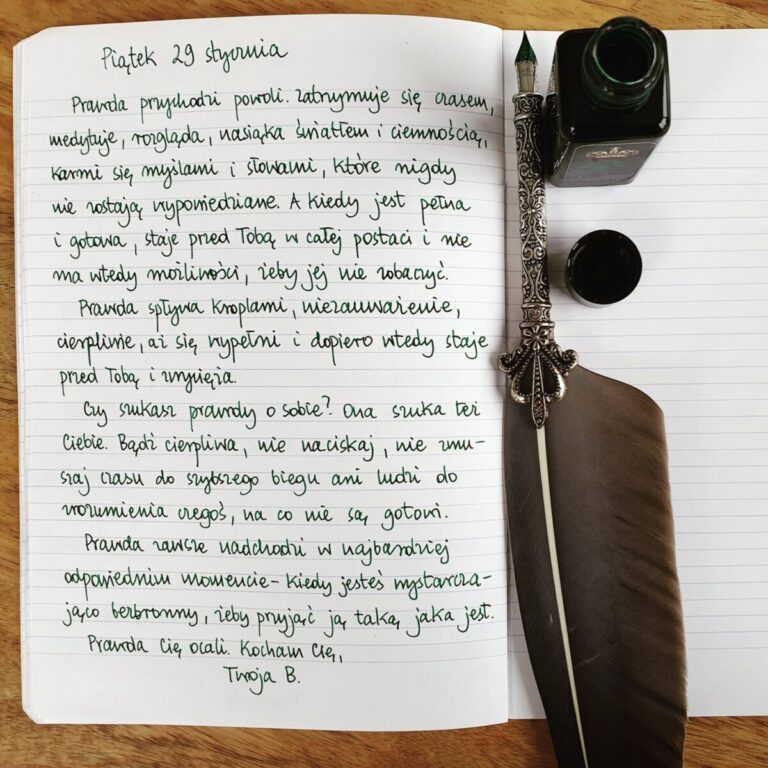 Piątek 29 stycznia
Prawda przychodzi powoli. Zatrzymuje się czasem,
medytuje, rozgląda, nasiąka światłem i ciemnością,
karmi się myślami i słowami, które nigdy
nie zostają wypowiedziane. A kiedy jest pełna
i gotowa, staje przed Tobą w całej postaci i nie
ma wtedy możliwości, żeby jej nie zobaczyć.
Prawda spływa kroplami, niezauważenie,
cierpliwie, aż się wypełni i dopiero wtedy staje
przed Tobą i zwycięża.
Czy szukasz prawdy o sobie? Ona szuka też
Ciebie. Bądź cierpliwa, nie naciskaj, nie zmu-
szaj czasu do szybszego biegu ani ludzi do
zrozumienia czegoś, na co nie są gotowi.
Prawda zawsze nadchodzi w najbardziej
odpowiednim momencie - kiedy jesteś wystarcza-
jąco bezbronny, żeby przyjąć ją taką, jaka jest.
Prawda Cię ocali. Kocham Cię,
Twoja B.